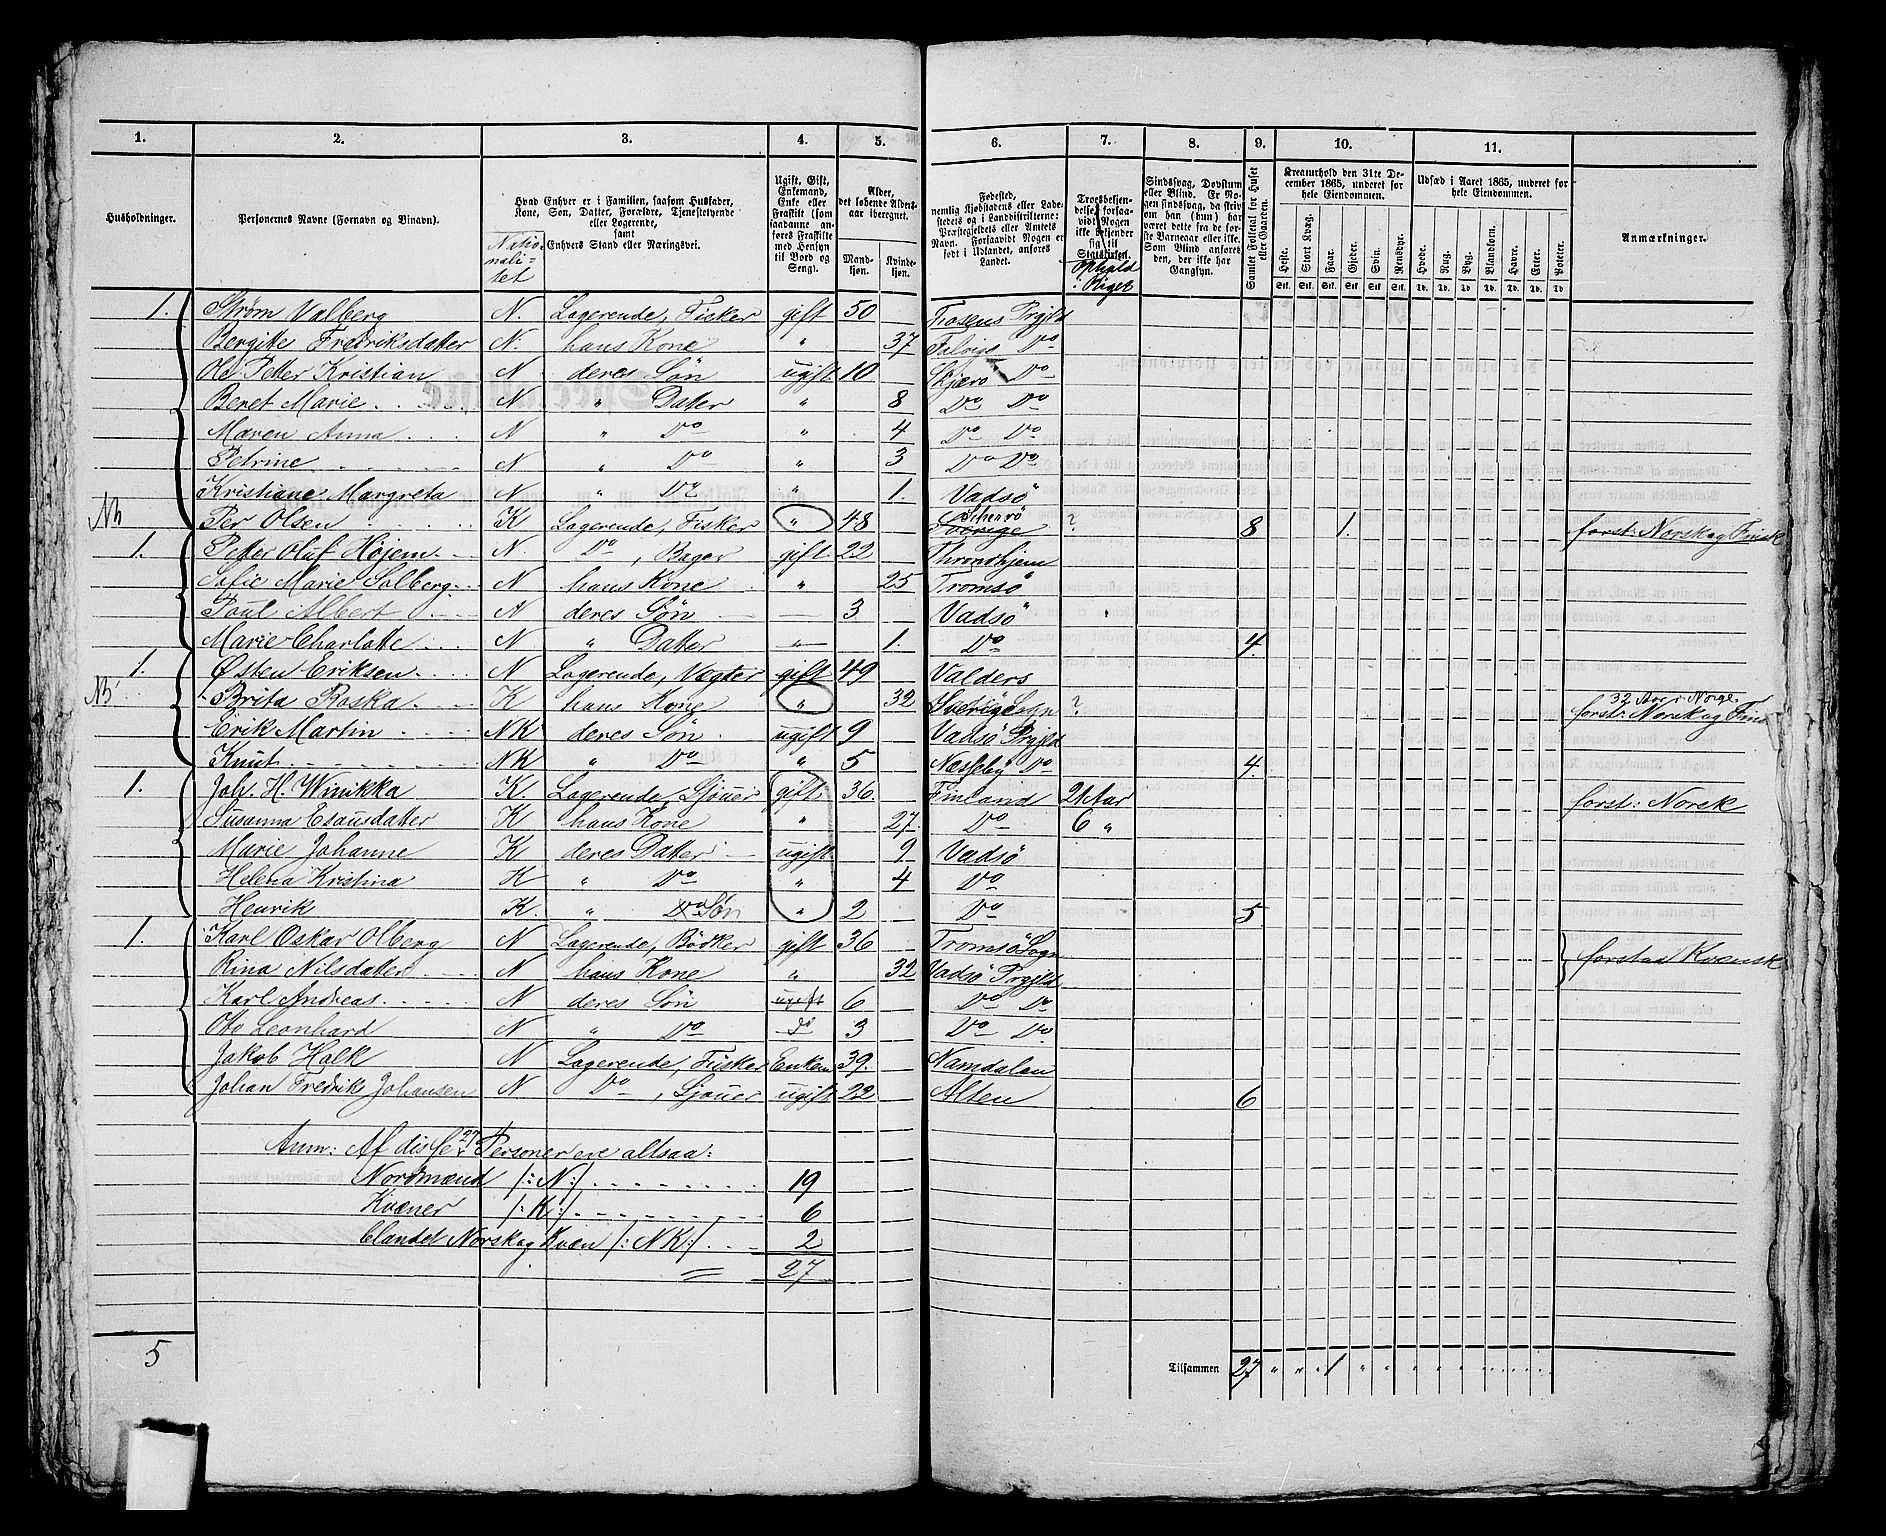 1. 2. 3. 4. 5. 6. 7. 8. 9. 10. 11.
Husholdninger.
Personernes Navne (Fornavn og Binavn).
Hvad Enhver er i Familien, saasom Husfader, Kone, Søn, Datter, Forældre, Tjenestetyende eller Logerende, samt Enhvers Stand eller Næringsvei.
Natio-nali-tet
Ugift, Gift, Enkemand, Enke eller Fraskilt (som saadanne anføres Fraskilte med Hensyn til Bord og Seng).
Alder, det løbende Aldersaar iberegnet.
Mandkjøn. Kvindekjøn.
Fødested, nemlig Kjøbstadens eller Ladestedets og i Landdistrikterne: Præstegjeldets eller Annexets Navn. Forsaavidt Nogen er født i Udlandet, anføres Landet.
Troesbekjendelse, forsaavidt Nogen ikke bekjender sig til Statskirken.
Ophold i Riget
Sindssvag, Døvstum eller Blind. Er Nogen sindssvag, da skrives om han (hun) har været dette fra de første Barneaar eller ikke. Som Blind anføres den, der ikke har Gangsyn.
Samlet Folketal for Huset eller Gaarden.
Kreaturhold den 31te December 1865, underet for hele Eiendommen.
Heste. Stort Kvæg. Faar. Gjeder. Svin. Rensdyr.
Stk. Stk. Stk. Stk. Stk. Stk.
Udsæd i Aaret 1865, underet for hele Eiendommen.
Hvede. Rug. Byg. Blandkorn. Havre. Erter. Poteter.
Td. Td. Td. Td. Td. Td. Td.
Anmærkninger.
1. Strøm Valberg N. Logerende, Fisker gift 50 Fosens Prgjld
Bergitte Fredriksdatter N. hans Kone " 37 Talvigs Do
Ole Petter Kristian N deres Søn ugift 10 Skjærvø Do
Beret Marie N " Datter " 8 Do Do
Maren Anna N " Do " 4 Do Do
Petrine N " Do " 3 Do Do
Kristiane Margreta N " Do " 1. Vadsø
NB Per Olsen K Logerende, Fisker " 48 Sverige ? 8 1. forst: Norsk og Finsk
1. Petter Oluf Højem N. Do, Bager gift 22 Throndhjem
Sofie Marie Solberg N hans Kone " 25 Tromsø
Poul Albert N deres Søn — 3 Vadsø
Marie Charlotte N " Datter " 1. Do 4.
1. Østen Eriksen N Logerende, Vægter gift 49 Valders
NB Brita Roska K hans Kone " 32 Sverige ? 32 Aar i Norge forst: Norsk og Fins
Erik Martin NK deres Søn ugift 9 Vadsø Prgjld
Knut NK " Do " 5 Næsseby Do 4.
1. Joh. H. Winikka K. Logerende, Sjouer gift 36. Finland 21 Aar forst: Norsk
Susanna Esausdatter K hans Kone " 27 Do 6 "
Marie Johanne K deres Datter ugift 9 Vadsø
Helena Kristina K " Do " 4 Do
Henrik K. " Do Søn " 2 Do 5.
1. Karl Oskar Olberg N Logerende, Bødker gift 36 Tromsø Sogn
Rina Nilsdatter N hans Kone " 32 Vadsø Prgjld forstaa Kvensk
Karl Andreas N deres Søn ugift 6 Do Do
Otto Leonhard N " Do do 3 Do Do
Jakob Holk N Logerende, Fisker Enkem 39. Namdalen
Johan Fredrik Johansen N Do, Sjouer ugift 22 Alten 6
Anm: Af disse 27 Personer ere altsaa:
Nordmænd /:N:/ 19
Kvæner /:K:/ 6
Blandet Norsk og Kvæn /:NK:/ 2
27
5
Tilsammen 27 " " " 1 " " " " " " " " "